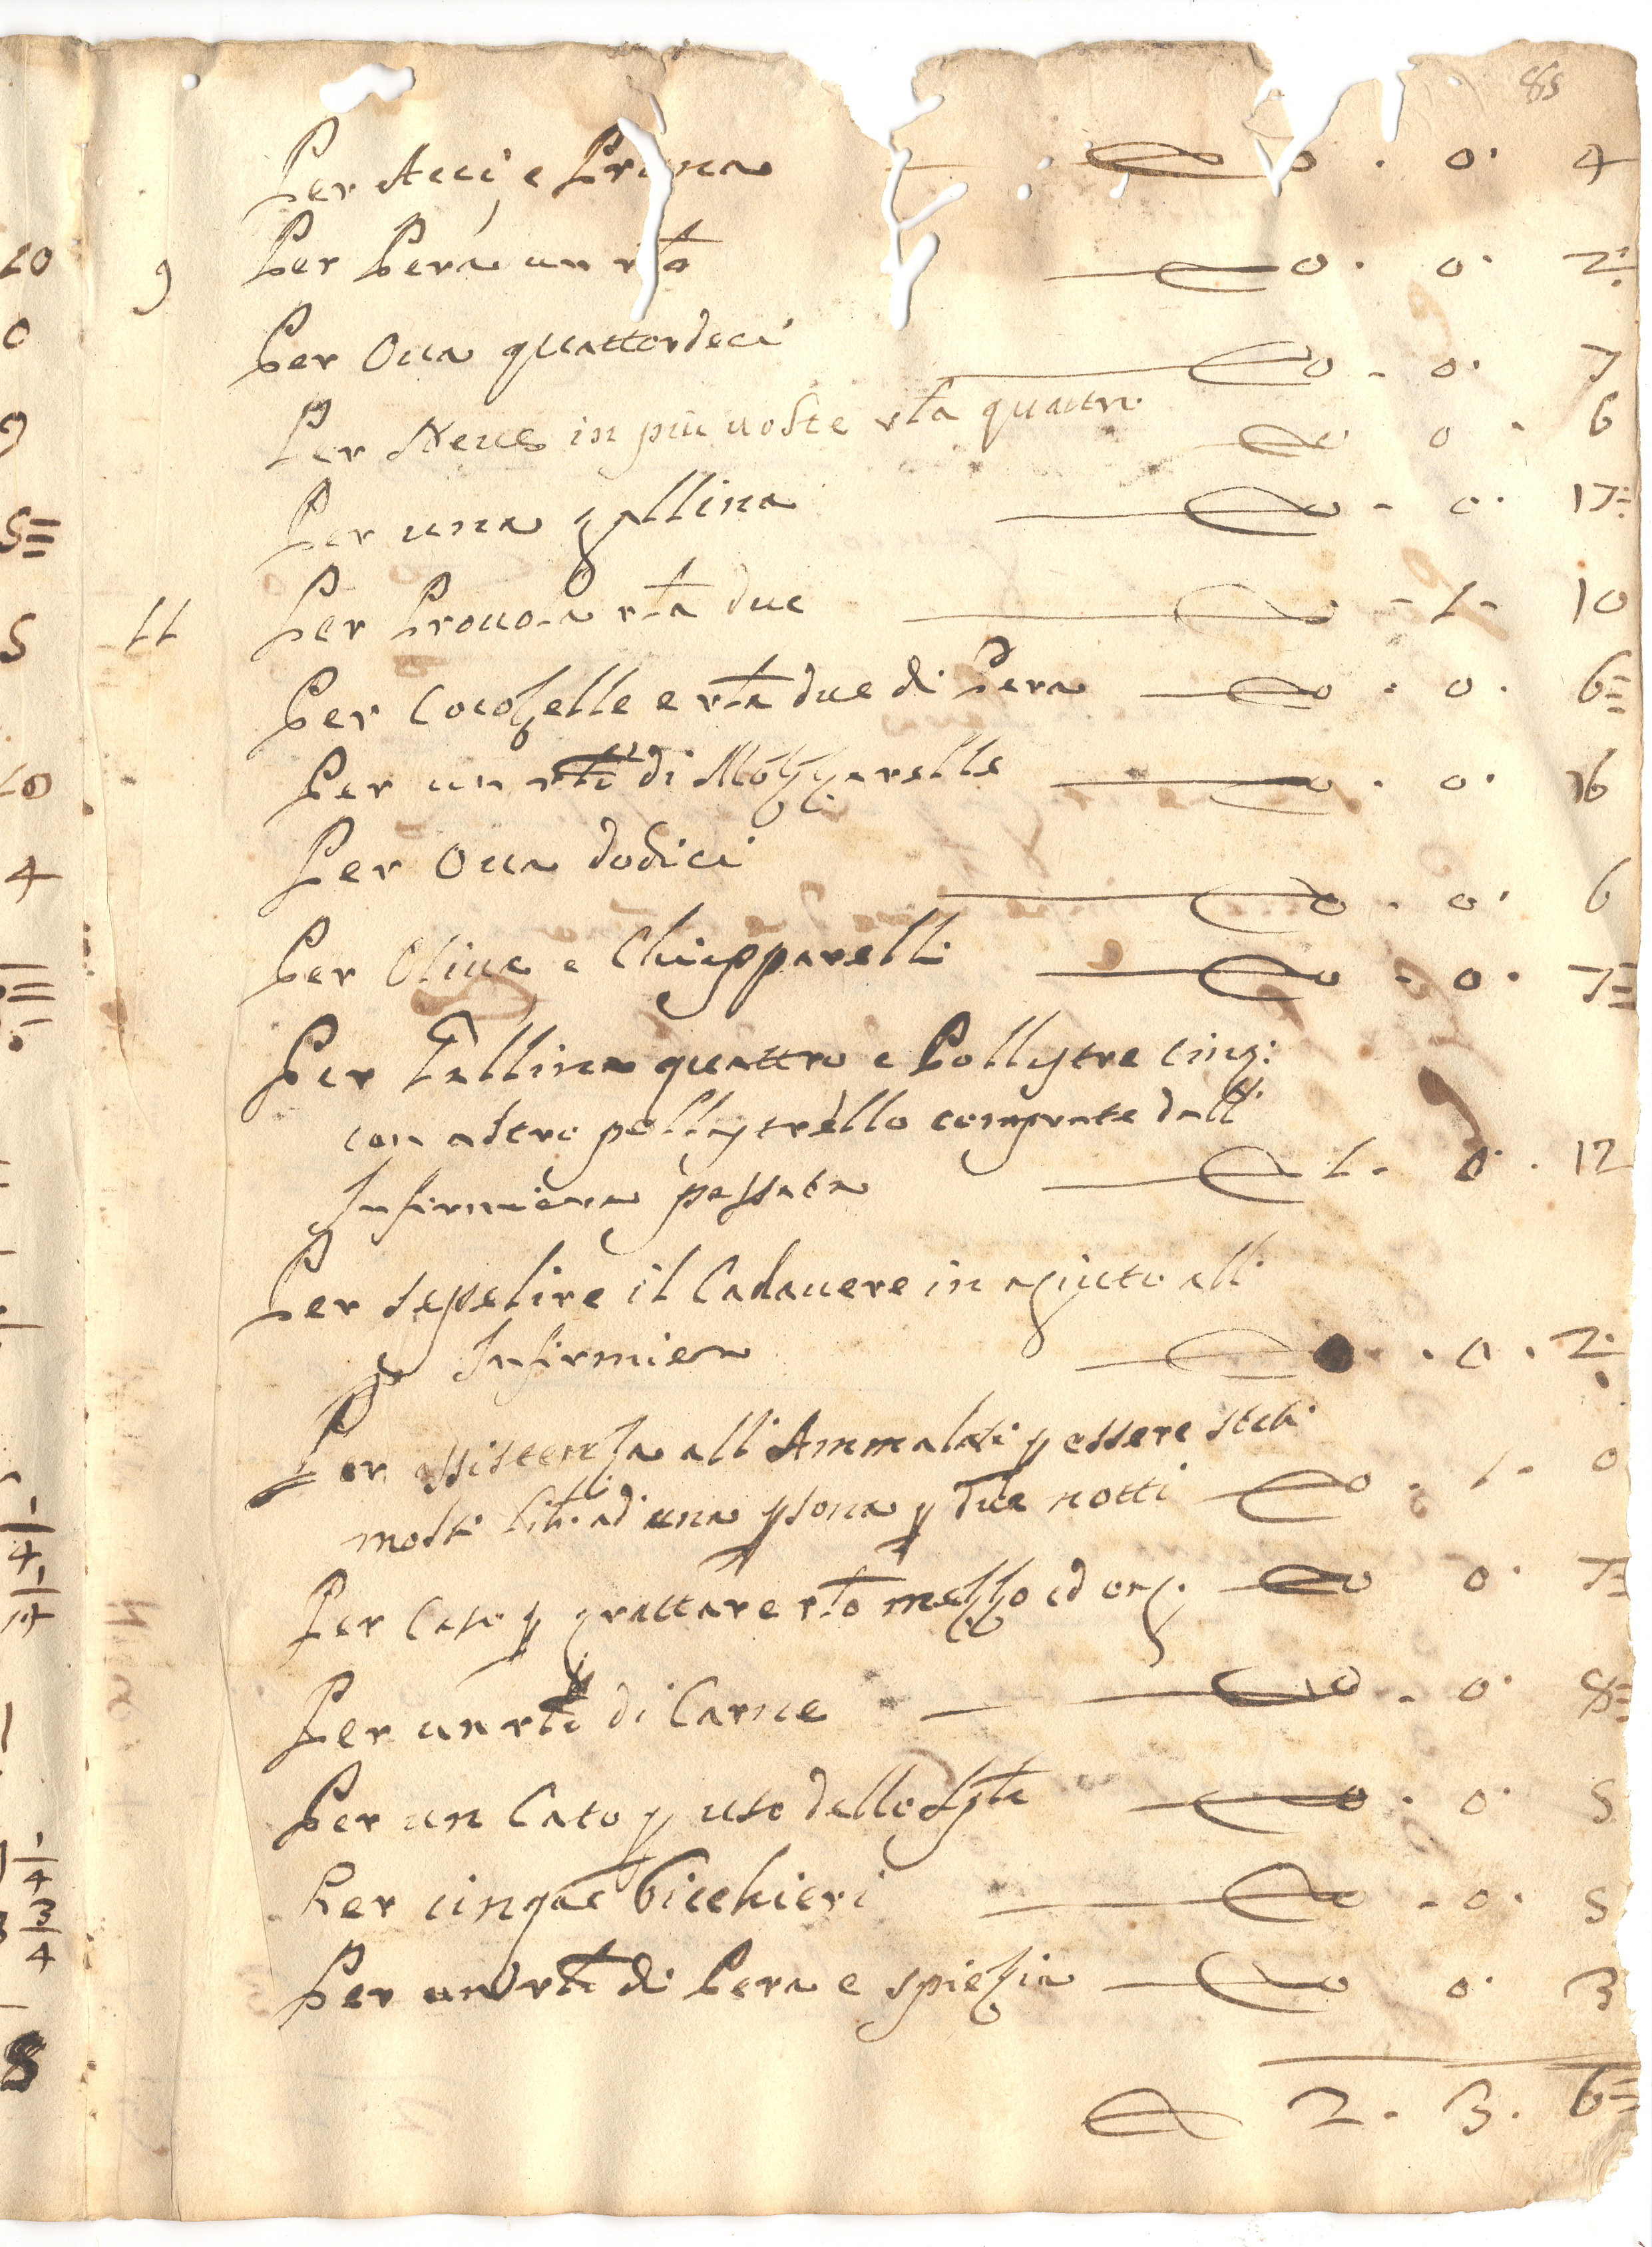 85
Per Acci, e 0 . 0 . 4
9 Per Pera un r.to 0 . 0 . 2
Per Oua quattordeci 0 . 0 . 7
Per Neue in più uolte r.ta quattro 0 . 0 . 6
Per una gallina 0 . 0 . 17
11 Per Prouola r.ta due 0 . 1 . 10
Per Cocozelle e r.ta due di Pera 0 . 0 . 6
Per un r.to di Mozzarelle 0 . 0 . 16
Per Oua dodici 0 . 0 . 6
Per Oliue e Chiapparelli 0 . 0 . 7
Per Gallina quattro e Pollastre cinq:
con altro pollastrello comprate dall'
Infirmiera passata 1 . 0 . 12
Per sepelire il Cadauere in agiuto all'
Infirmiera . 0 . 2
Per assistenza alli Ammalati p essere stati
molti ad una psona p due notti 0 . 1 . 0
Per Caso p grattare r.to mezzo ed 0 0 . 7
Per un r.to di Carne 0 . 0 . 8
Per un Cato p uso dello 0 . 0 . 5
Per cinque bicchieri 0 . 0 . 5
Per un r.to di Pera e spiezia 0 0 . 3
2 . 3 . 6